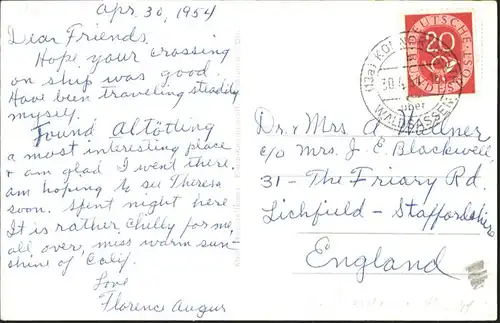 Apr. 30, 1954
Dear Friends,
Hope your crossing
on ship was good.
Have been traveling steadily
myself.
Found Altötting
a most interesting place
+ am glad I went there.
am hoping to see Theresa
soon. Spent night here
It is rather chilly for me,
all over, miss warm sun-
shine of Calif.
Love
Florence Angus
DEUTSCHE BUNDESPOST
20
(13a) KON
30.4
über
WALDSASSEN
Dr. + Mrs A.
c/o Mrs. J. E. Blackwell
31 - The Friary Rd.
Lichfield - Staffordshire
England